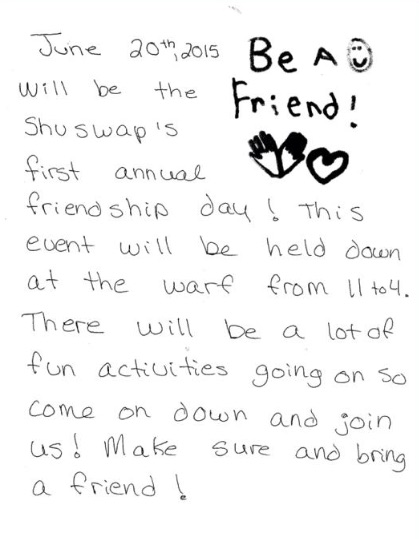 June 20th, 2015
will be the
Shuswap's
first annual
Be A
Friend!
friendship day! This
event will be held down
at the warf from 11 to 4.
There will be a lot of
fun activities going on so
come on down and join
us! Make sure and bring
a friend!